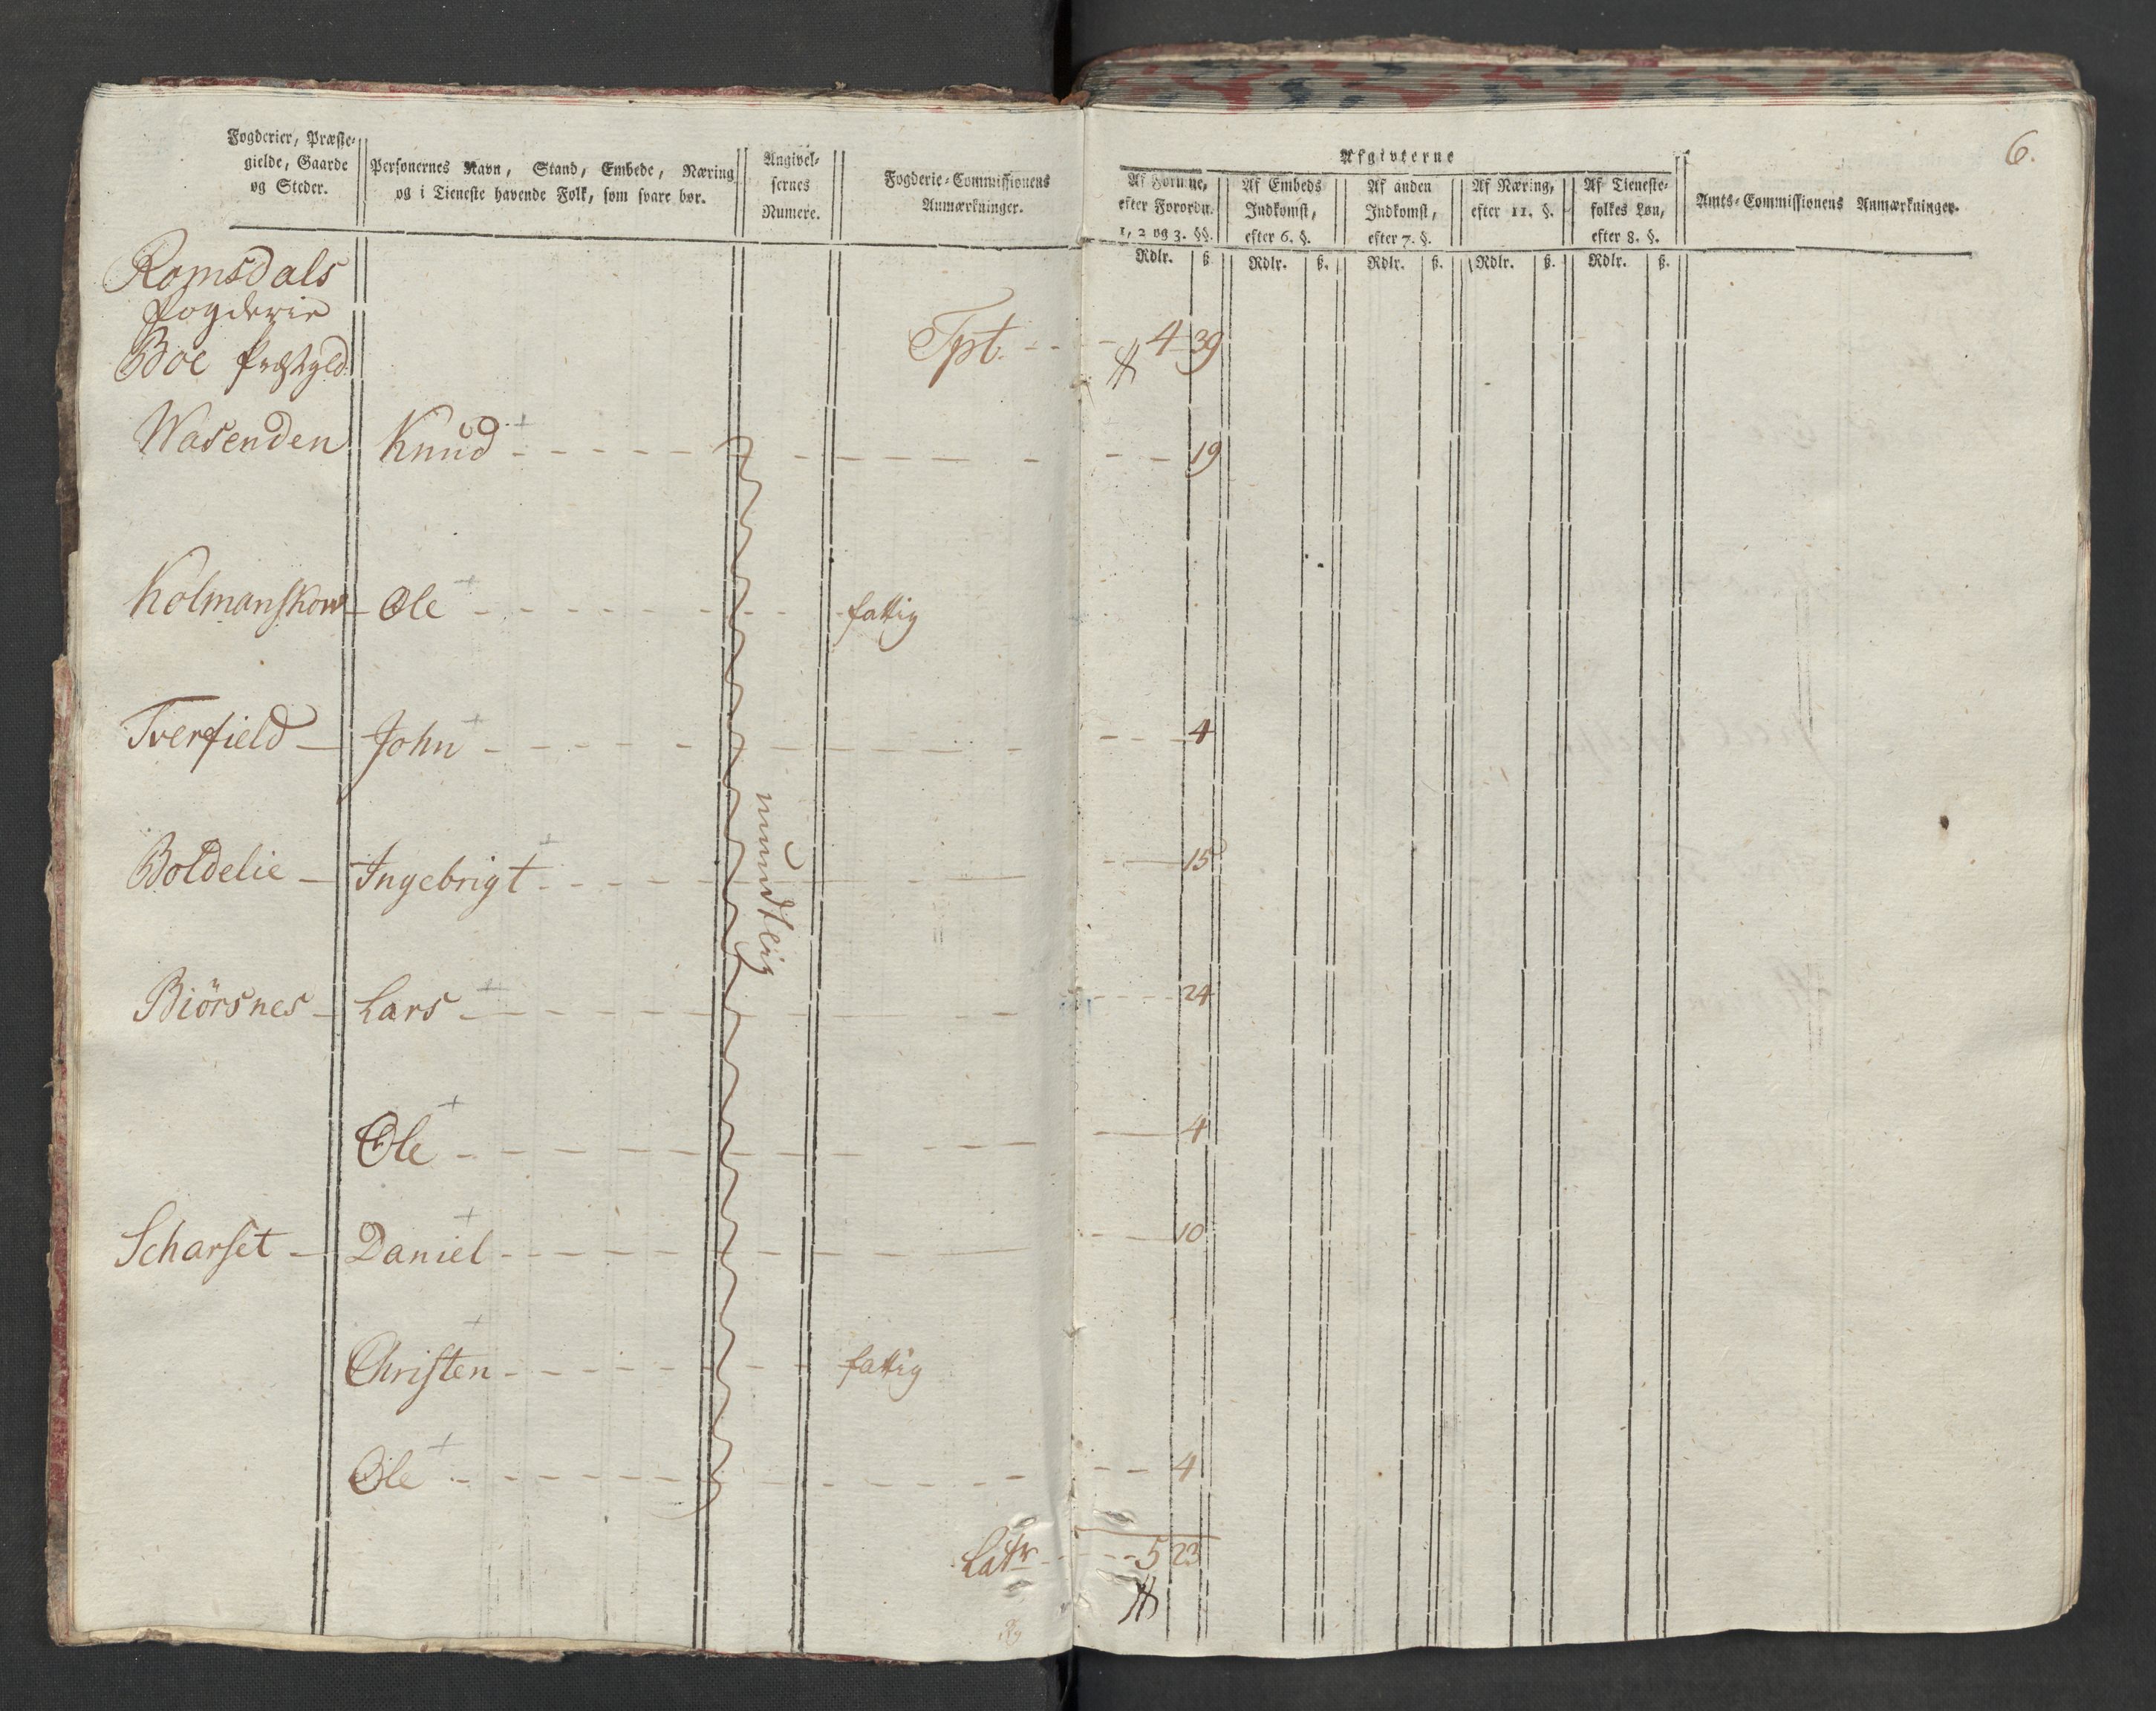 6.
Fogderier, Præste-
gielde, Gaarde
og Steder.
Personernes Navn, Stand, Embede, Næring
og i Tieneste havende Folk, som svare bør.
Angivel-
sernes
Numere.
Fogderie-Commissionens
Anmærkninger.
Afgivterne
Af Formue,
efter Forordn.
1, 2 og 3. §§.
Af Embeds
Indkomst,
efter 6. §.
Af anden
Indkomst,
efter 7. §.
Af Næring,
efter 11. §.
Af Tieneste-
folkes Løn,
efter 8. §.
Amts-Commissionens Anmærkninger.
Rdlr. ß. Rdlr. ß. Rdlr. ß. Rdlr. ß. Rdlr. ß.
Romsdals
Fogderie
Boe Præstgield
Tpt. 4 39
Wasenden Knud 19
Kolmanskow Ole fattig
Tverfield John 4
Boldelie Ingebrigt 15
mundtlig
Biörsnes Lars 24
Ole 4
Scharset Daniel 10
Christen fattig
Ole 4
Latr 5 23